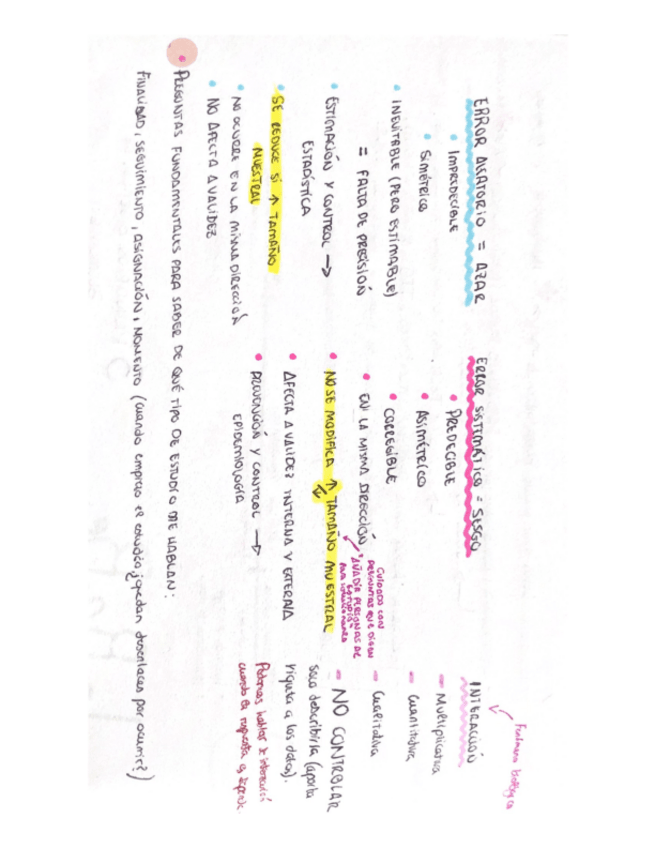 ERROR ALEATORIO = AZAR
• IMPREDECIBLE
• SIMÉTRICO
• INEVITABLE (PERO ESTIMABLE)
= FALTA DE PRECISIÓN
• ESTIMACIÓN Y CONTROL →
ESTADÍSTICA
• SE REDUCE SI ↑ TAMAÑO
MUESTRAL
• NO OCURRE EN LA MISMA DIRECCIÓN
• NO AFECTA A VALIDEZ
ERROR SISTEMÁTICO = SESGO
• PREDECIBLE
• ASIMÉTRICO
• CORREGIBLE
• EN LA MISMA DIRECCIÓN
• NO SE MODIFICA ↑ TAMAÑO MUESTRAL
CUIDADO CON
PREGUNTAS QUE DIGAN
"AÑADIR PERSONAS DE
PARA
• AFECTA A VALIDEZ INTERNA Y EXTERNA
• PREVENCIÓN Y CONTROL →
EPIDEMIOLOGÍA
Fenómeno biológico
INTERACCIÓN
- Multiplicativa
- Cuantitativa
- Cualitativa
- NO CONTROLAR
solo describirla (aporta
riqueza a los datos).
Podemos hablar de interacción
cuando la respuesta es
• PREGUNTAS FUNDAMENTALES PARA SABER DE QUÉ TIPO DE ESTUDIO ME HABLAN:
FINALIDAD, SEGUIMIENTO, ASIGNACIÓN, MOMENTO (cuando empieza el estudio ¿quedan desenlaces por ocurrir?)